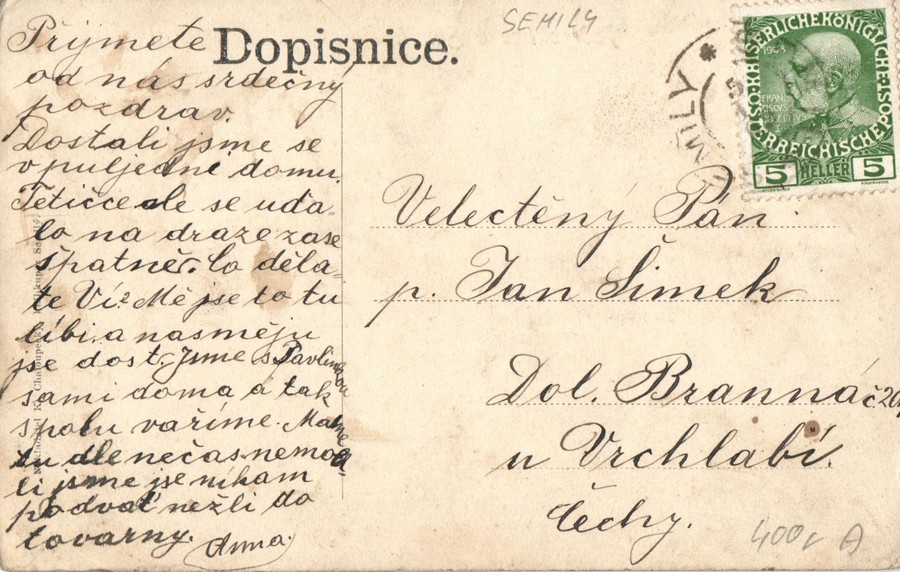 SEMILY
Dopisnice.
Přijmete
od nás srdečný
pozdrav.
Dostali jsme se
v půljedné domu.
Tetičce ale se uďa-
lo na draze zase
špatně. Co děla-
te Ví? Mě jse to tu
líbí a nasměju
jse dost. Jsme s Pavlínkou
sami doma a tak
spolu vaříme. Máme
tu dle nečas nemoh-
li jsme jse nikam
podvať nežli do
továrny. Anna.
MILY *
KAISERLICHE KÖNIGLICHE
ÖSTERREICHISCHE POST
1908
5 HELLER 5
Velectěný Pán
p. Jan Šimek
Dol. Branná č. 20
u Vrchlabí.
Čechy.
400,- A